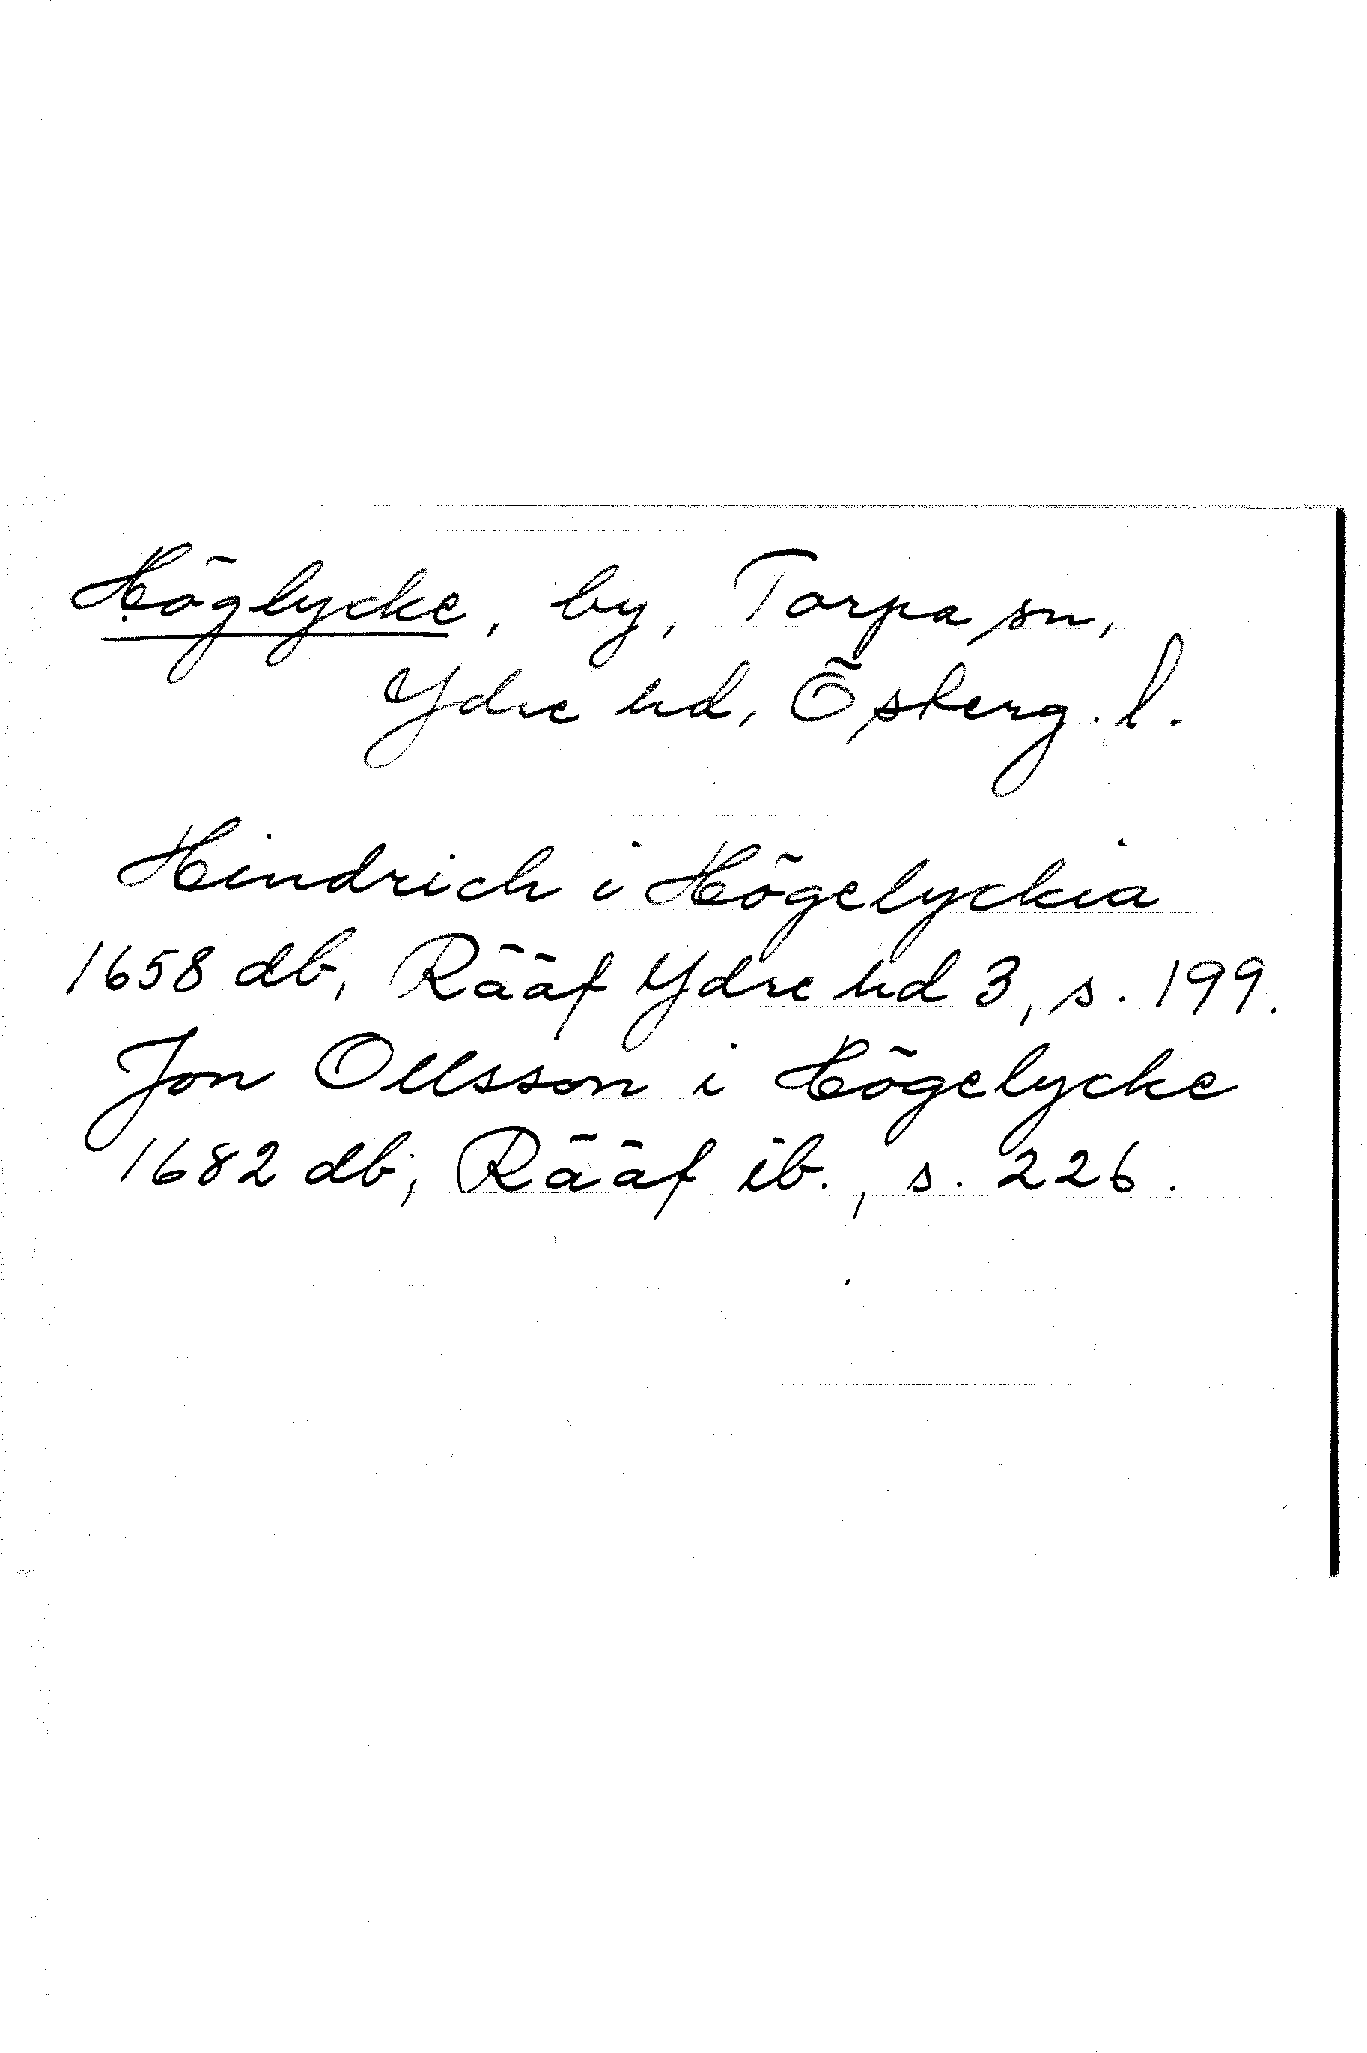 Höglycke, by, Torpa sn,
Ydre hd, Österg. l.
Hindrich i Högelyckia
1658 db, Rääf Ydre hd 3, s. 199.
Jon Ollsson i Högelycke
1682 db; Rääf ib., s. 226.